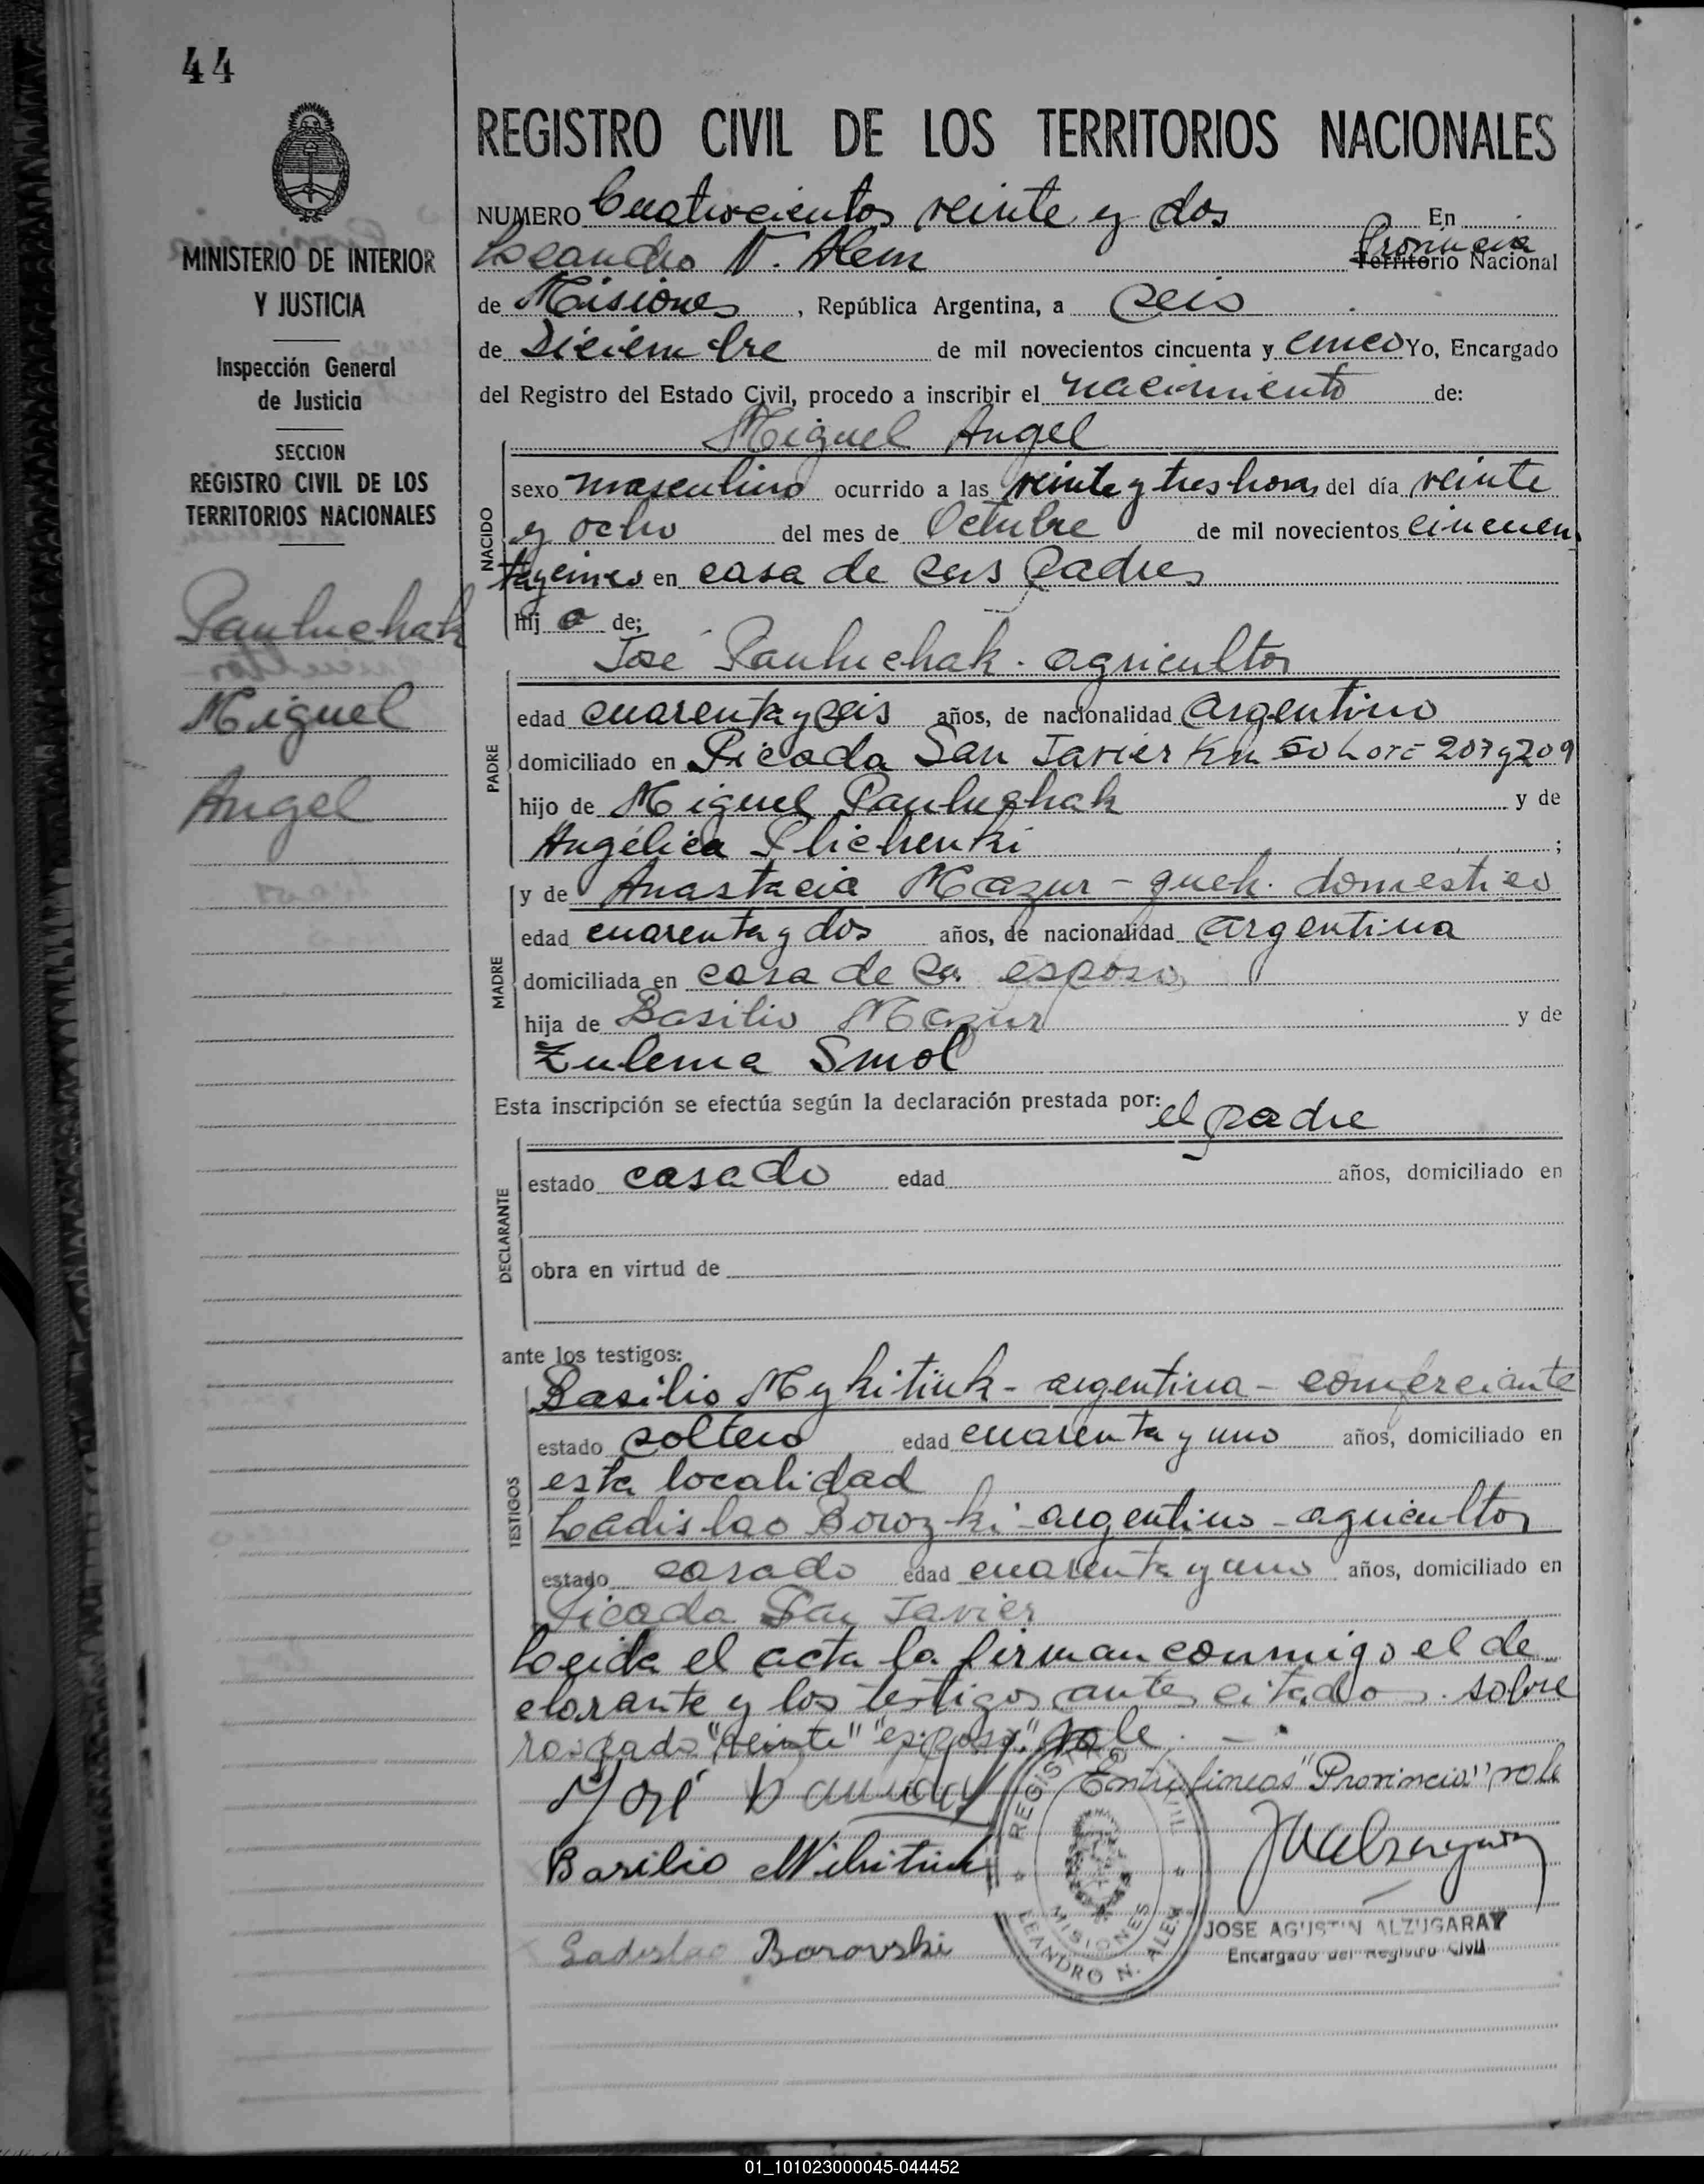 44
REGISTRO CIVIL DE LOS TERRITORIOS NACIONALES
MINISTERIO DE INTERIOR
Y JUSTICIA
Inspección General
de Justicia
SECCION
REGISTRO CIVIL DE LOS
TERRITORIOS NACIONALES
Pauluchak
Miguel
Angel
NUMERO Cuatrocientos veinte y dos En
Leandro N. Alem Provincia Territorio Nacional
de Misiones, República Argentina, a seis
de Diciembre de mil novecientos cincuenta y cinco Yo, Encargado
del Registro del Estado Civil, procedo a inscribir el nacimiento de:
Miguel Angel
NACIDO
sexo masculino ocurrido a las veinte y tres horas del día veinte
y ocho del mes de Octubre de mil novecientos cincuen
ta y cinco en casa de sus padres
hij o de;
José Pauluchak - agricultor
PADRE
edad cuarenta y seis años, de nacionalidad argentino
domiciliado en Picada San Javier Km 50 Lote 207 y 209
hijo de Miguel Pauluchak y de
Angélica Plichenki ;
y de Anastacia Mazur - queh. domestico
MADRE
edad cuarenta y dos años, de nacionalidad argentina
domiciliada en casa de su esposo
hija de Basilio Mazur y de
Zulema Smol
Esta inscripción se efectúa según la declaración prestada por:
el padre
DECLARANTE
estado casado edad años, domiciliado en
obra en virtud de
ante los testigos:
TESTIGOS
Basilio Mykitiuk - argentina - comerciante
estado soltero edad cuarenta y uno años, domiciliado en
esta localidad
Ladislao Borozki - argentino - agricultor
estado casado edad cuarenta y uno años, domiciliado en
Picada San Javier
Leida el acta la firman conmigo el de
clarante y los testigos antes citados. sobre
rospado "veinte" "esposo" vale. -
Entrelineas "Provincia" vale
José
Basilio Mikitiuk
Ladislao Borovski
REGISTRO CIVIL
MISIONES
LEANDRO N. ALEM
JOSE AGUSTIN ALZUGARAY
Encargado del Registro Civil
01_101023000045-044452